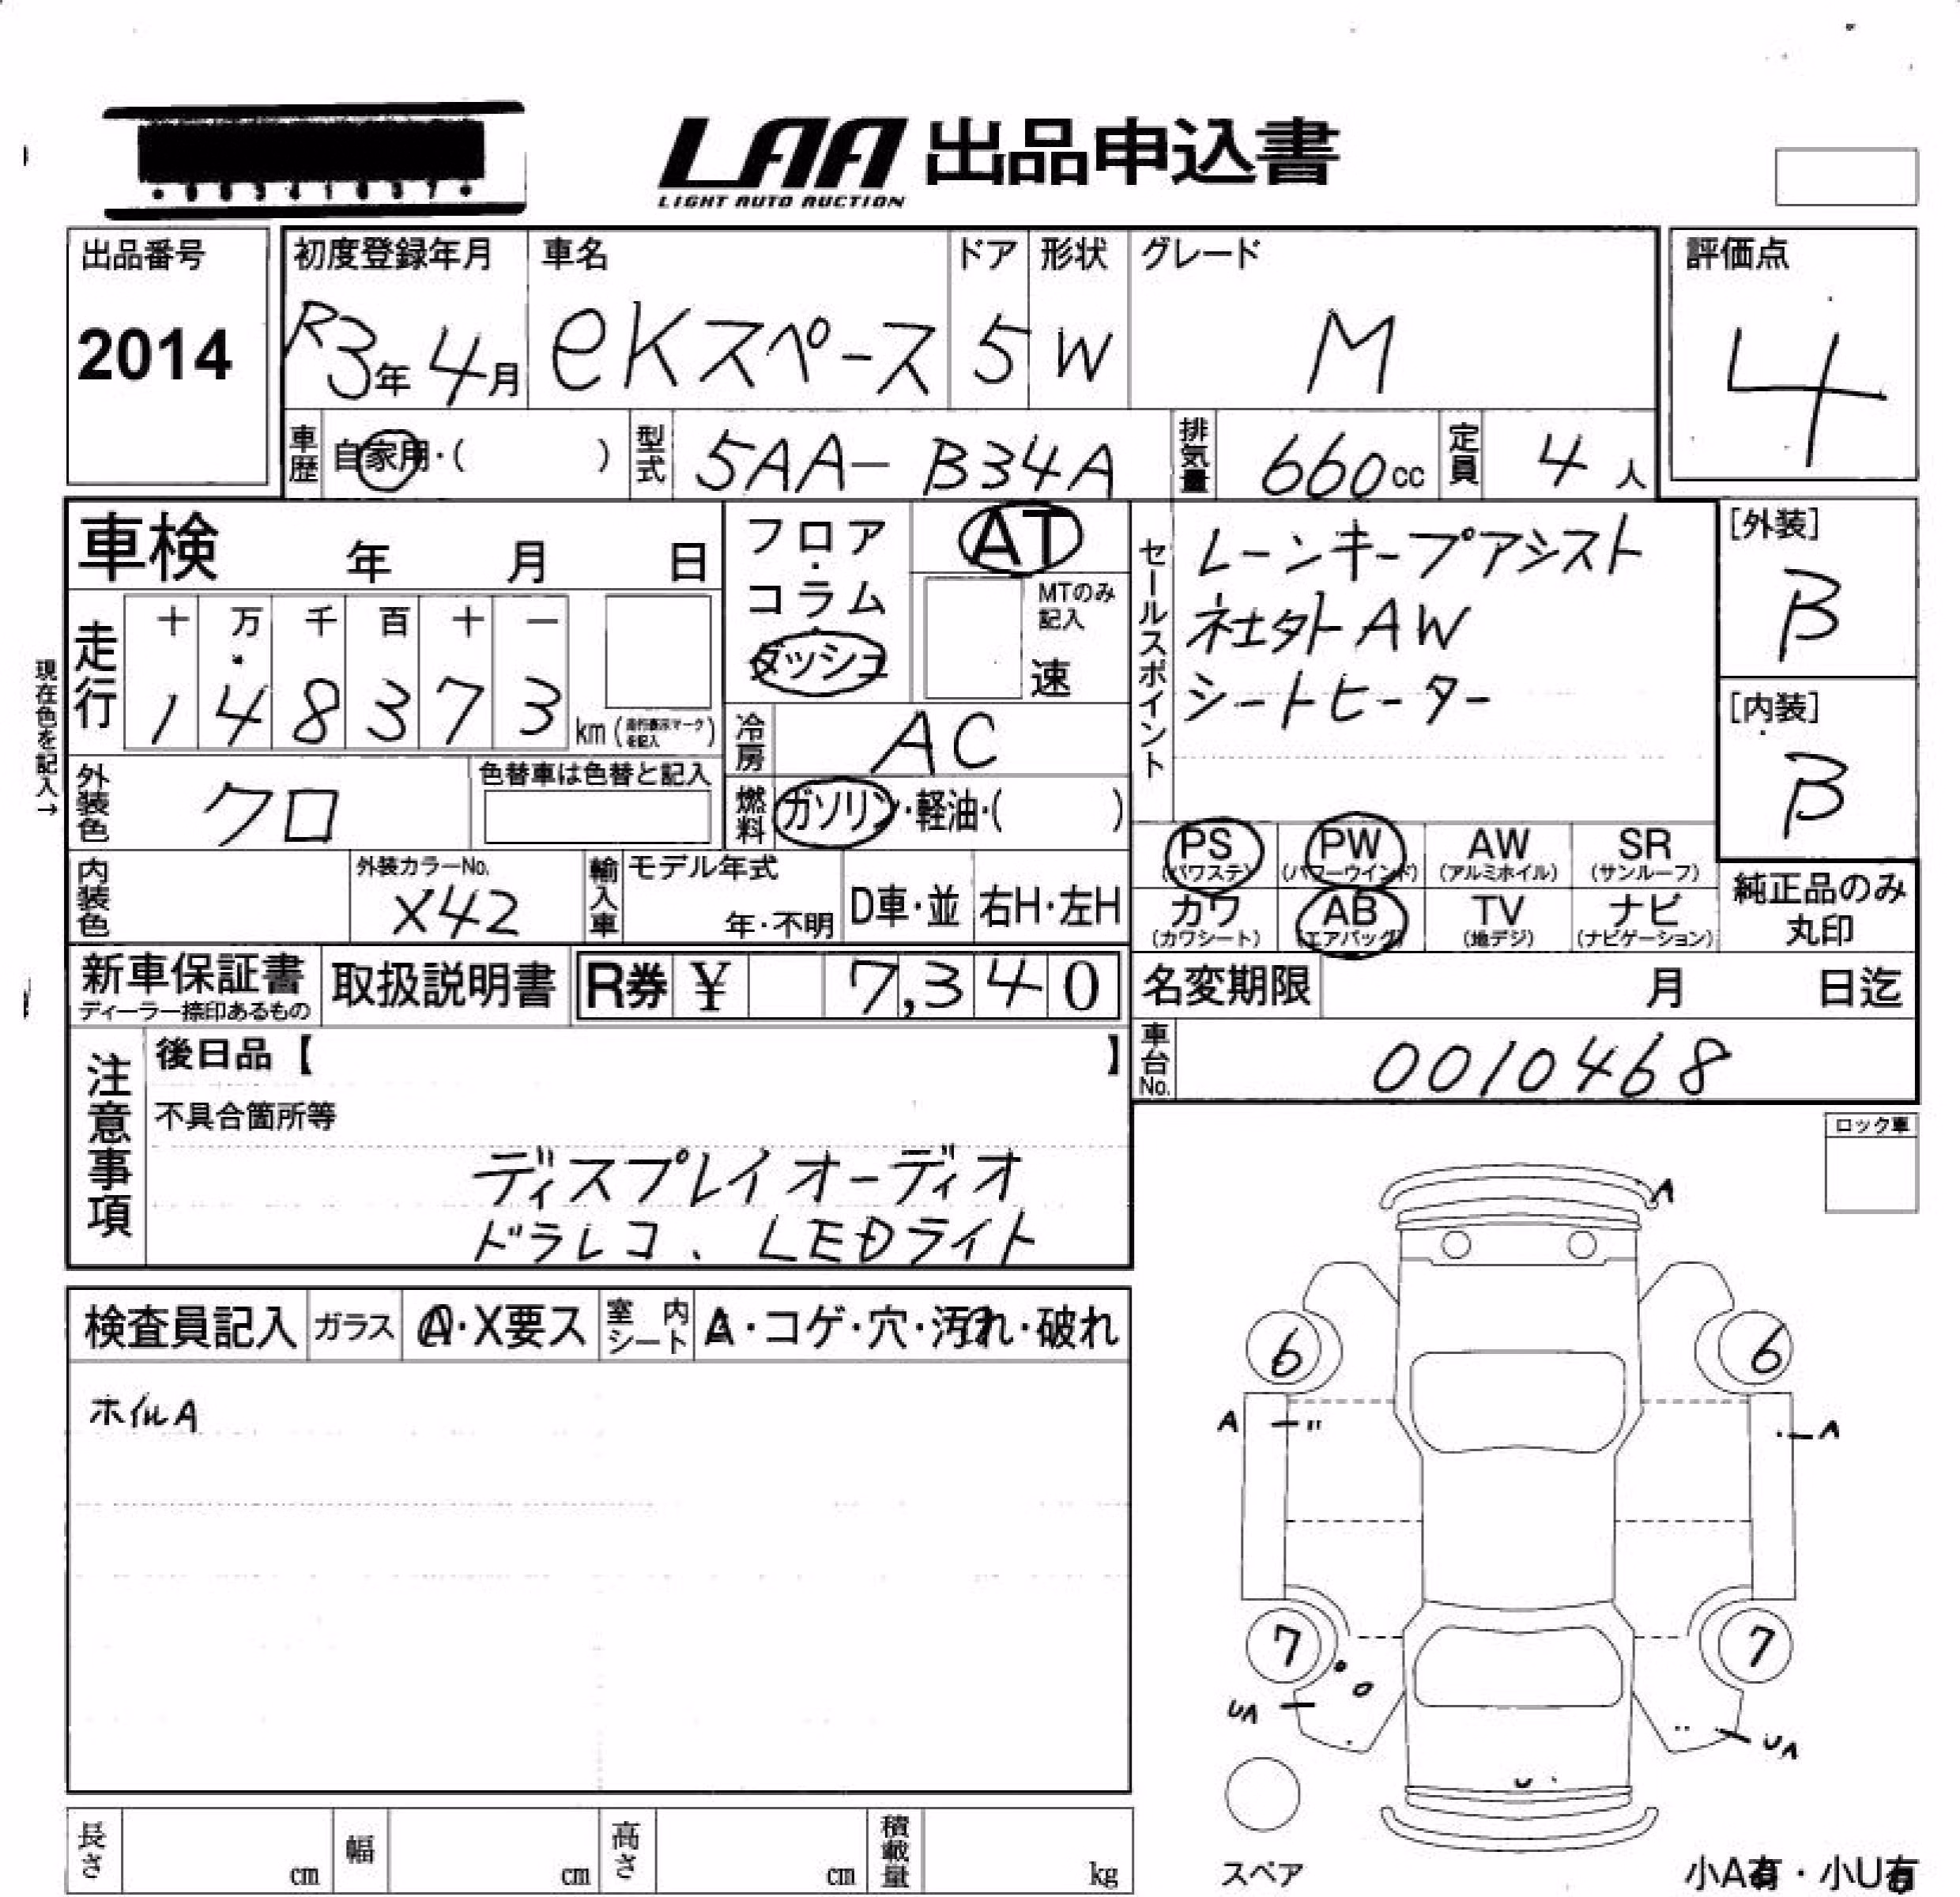 LAA 出品申込書
LIGHT AUTO AUCTION
出品番号 初度登録年月 車名 ドア 形状 グレード 評価点
2014 R3年 4月 eKスペース 5 W M 4
車歴 自家用・( ) 型式 5AA-B34A 排気量 660cc 定員 4人
車検 年 月 日 フロア・コラム・ダッシュ AT
MTのみ記入 速
セールスポイント レーンキープアシスト
社外AW
シートヒーター
[外装] B
[内装] B
現在色を記入→
走行 十 万 千 百 十 一
1 4 8 3 7 3 km (走行表示マークを記入)
冷房 AC
外装色 クロ 色替車は色替と記入
燃料 ガソリン・軽油・( )
PS (パワステ) PW (パワーウインド) AW (アルミホイル) SR (サンルーフ)
カワ (カワシート) AB (エアバッグ) TV (地デジ) ナビ (ナビゲーション)
純正品のみ
丸印
内装色 外装カラーNo. X42 輸入車 モデル年式 年・不明 D車・並 右H・左H
新車保証書 ディーラー捺印あるもの 取扱説明書 R券 ¥ 7,340
名変期限 月 日迄
車台No. 0010468
注意事項 後日品【 】
不具合箇所等
ディスプレイオーディオ
ドラレコ、LEDライト
ロック車
検査員記入 ガラス A・X要ス 室内シート A・コゲ・穴・汚れ・破れ
ホイルA
A
6 6
A A
7 7
UA UA
U
スペア
小A有・小U有
長さ cm 幅 cm 高さ cm 積載量 kg